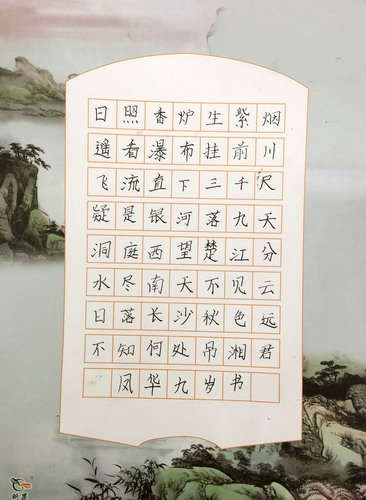 日照香炉生紫烟
遥看瀑布挂前川
飞流直下三千尺
疑是银河落九天
洞庭西望楚江分
水尽南天不见云
日落长沙秋色远
不知何处吊湘君
凤华九岁书